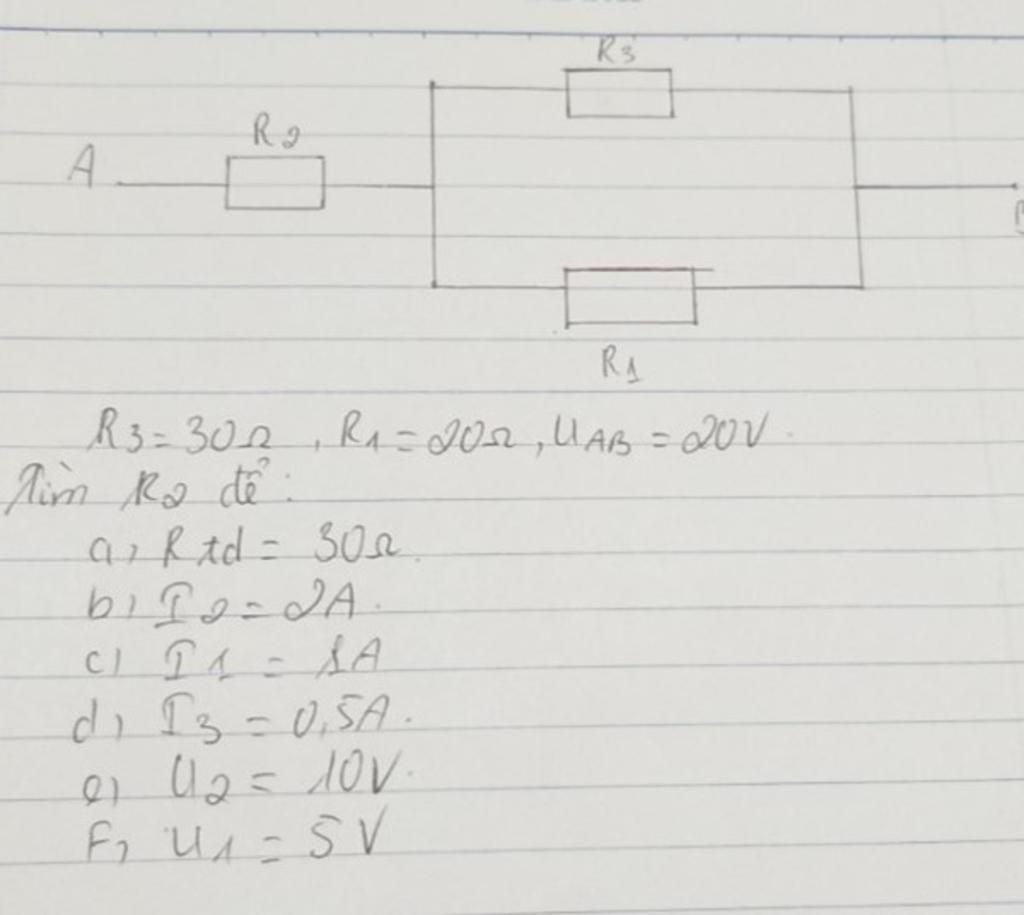 R3
R2
A
B
R1
R3 = 30Ω, R1 = 20Ω, UAB = 20V.
Tìm R2 để:
a, Rtd = 30Ω.
b, I2 = 2A.
c, I1 = 1A
d, I3 = 0,5A.
e, U2 = 10V.
F, U1 = 5V